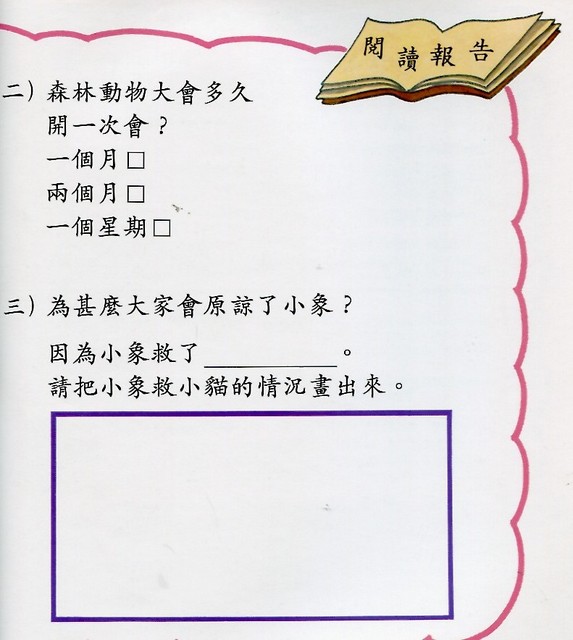 閱讀報告
二) 森林動物大會多久
開一次會？
一個月□
兩個月□
一個星期□
三) 為甚麼大家會原諒了小象？
因為小象救了__________。
請把小象救小貓的情況畫出來。